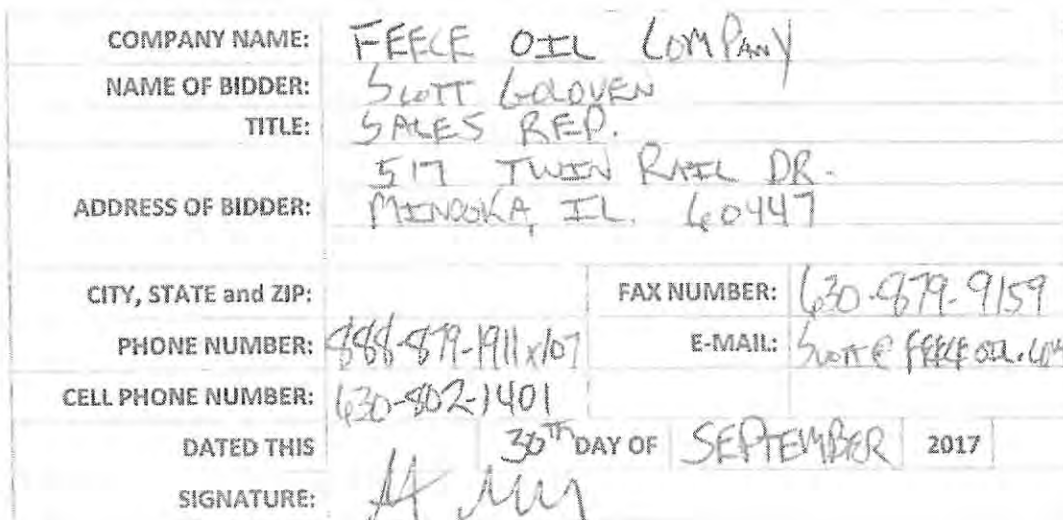 COMPANY NAME: FEECE OIL COMPANY
NAME OF BIDDER: SCOTT GOLOVEN
TITLE: SALES REP.
517 TWIN RAIL DR.
ADDRESS OF BIDDER: MINOOKA, IL. 60447
CITY, STATE and ZIP: FAX NUMBER: 630-879-9159
PHONE NUMBER: 888-879-1911 x107 E-MAIL: SCOTT@FEECEOIL.COM
CELL PHONE NUMBER: 630-802-1401
DATED THIS 30TH DAY OF SEPTEMBER 2017
SIGNATURE: